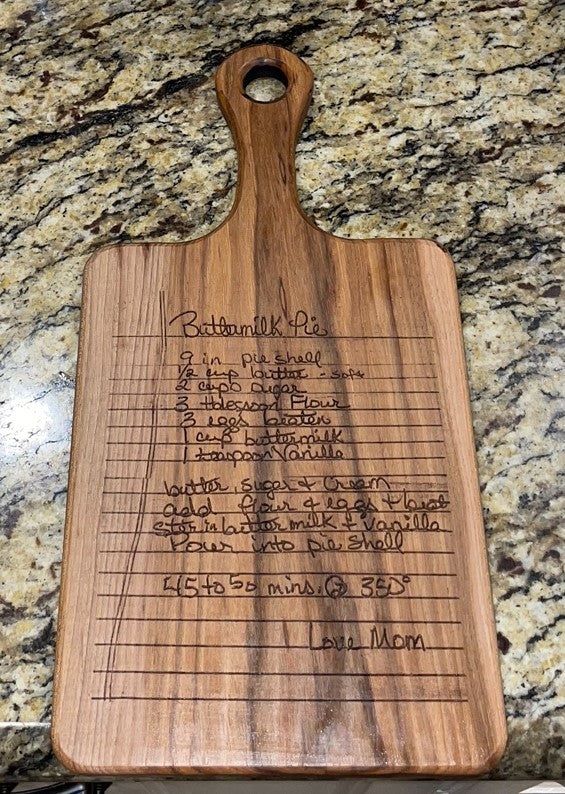 Buttermilk Pie
9 in pie shell
1/2 cup butter - soft
2 cups sugar
3 tablespoon Flour
3 eggs beaten
1 cup buttermilk
1 teaspoon Vanilla
butter, sugar & Cream
add flour & eggs & beat
Stir in buttermilk & Vanilla
Pour into pie Shell
45 to 50 mins. @ 350°
Love Mom